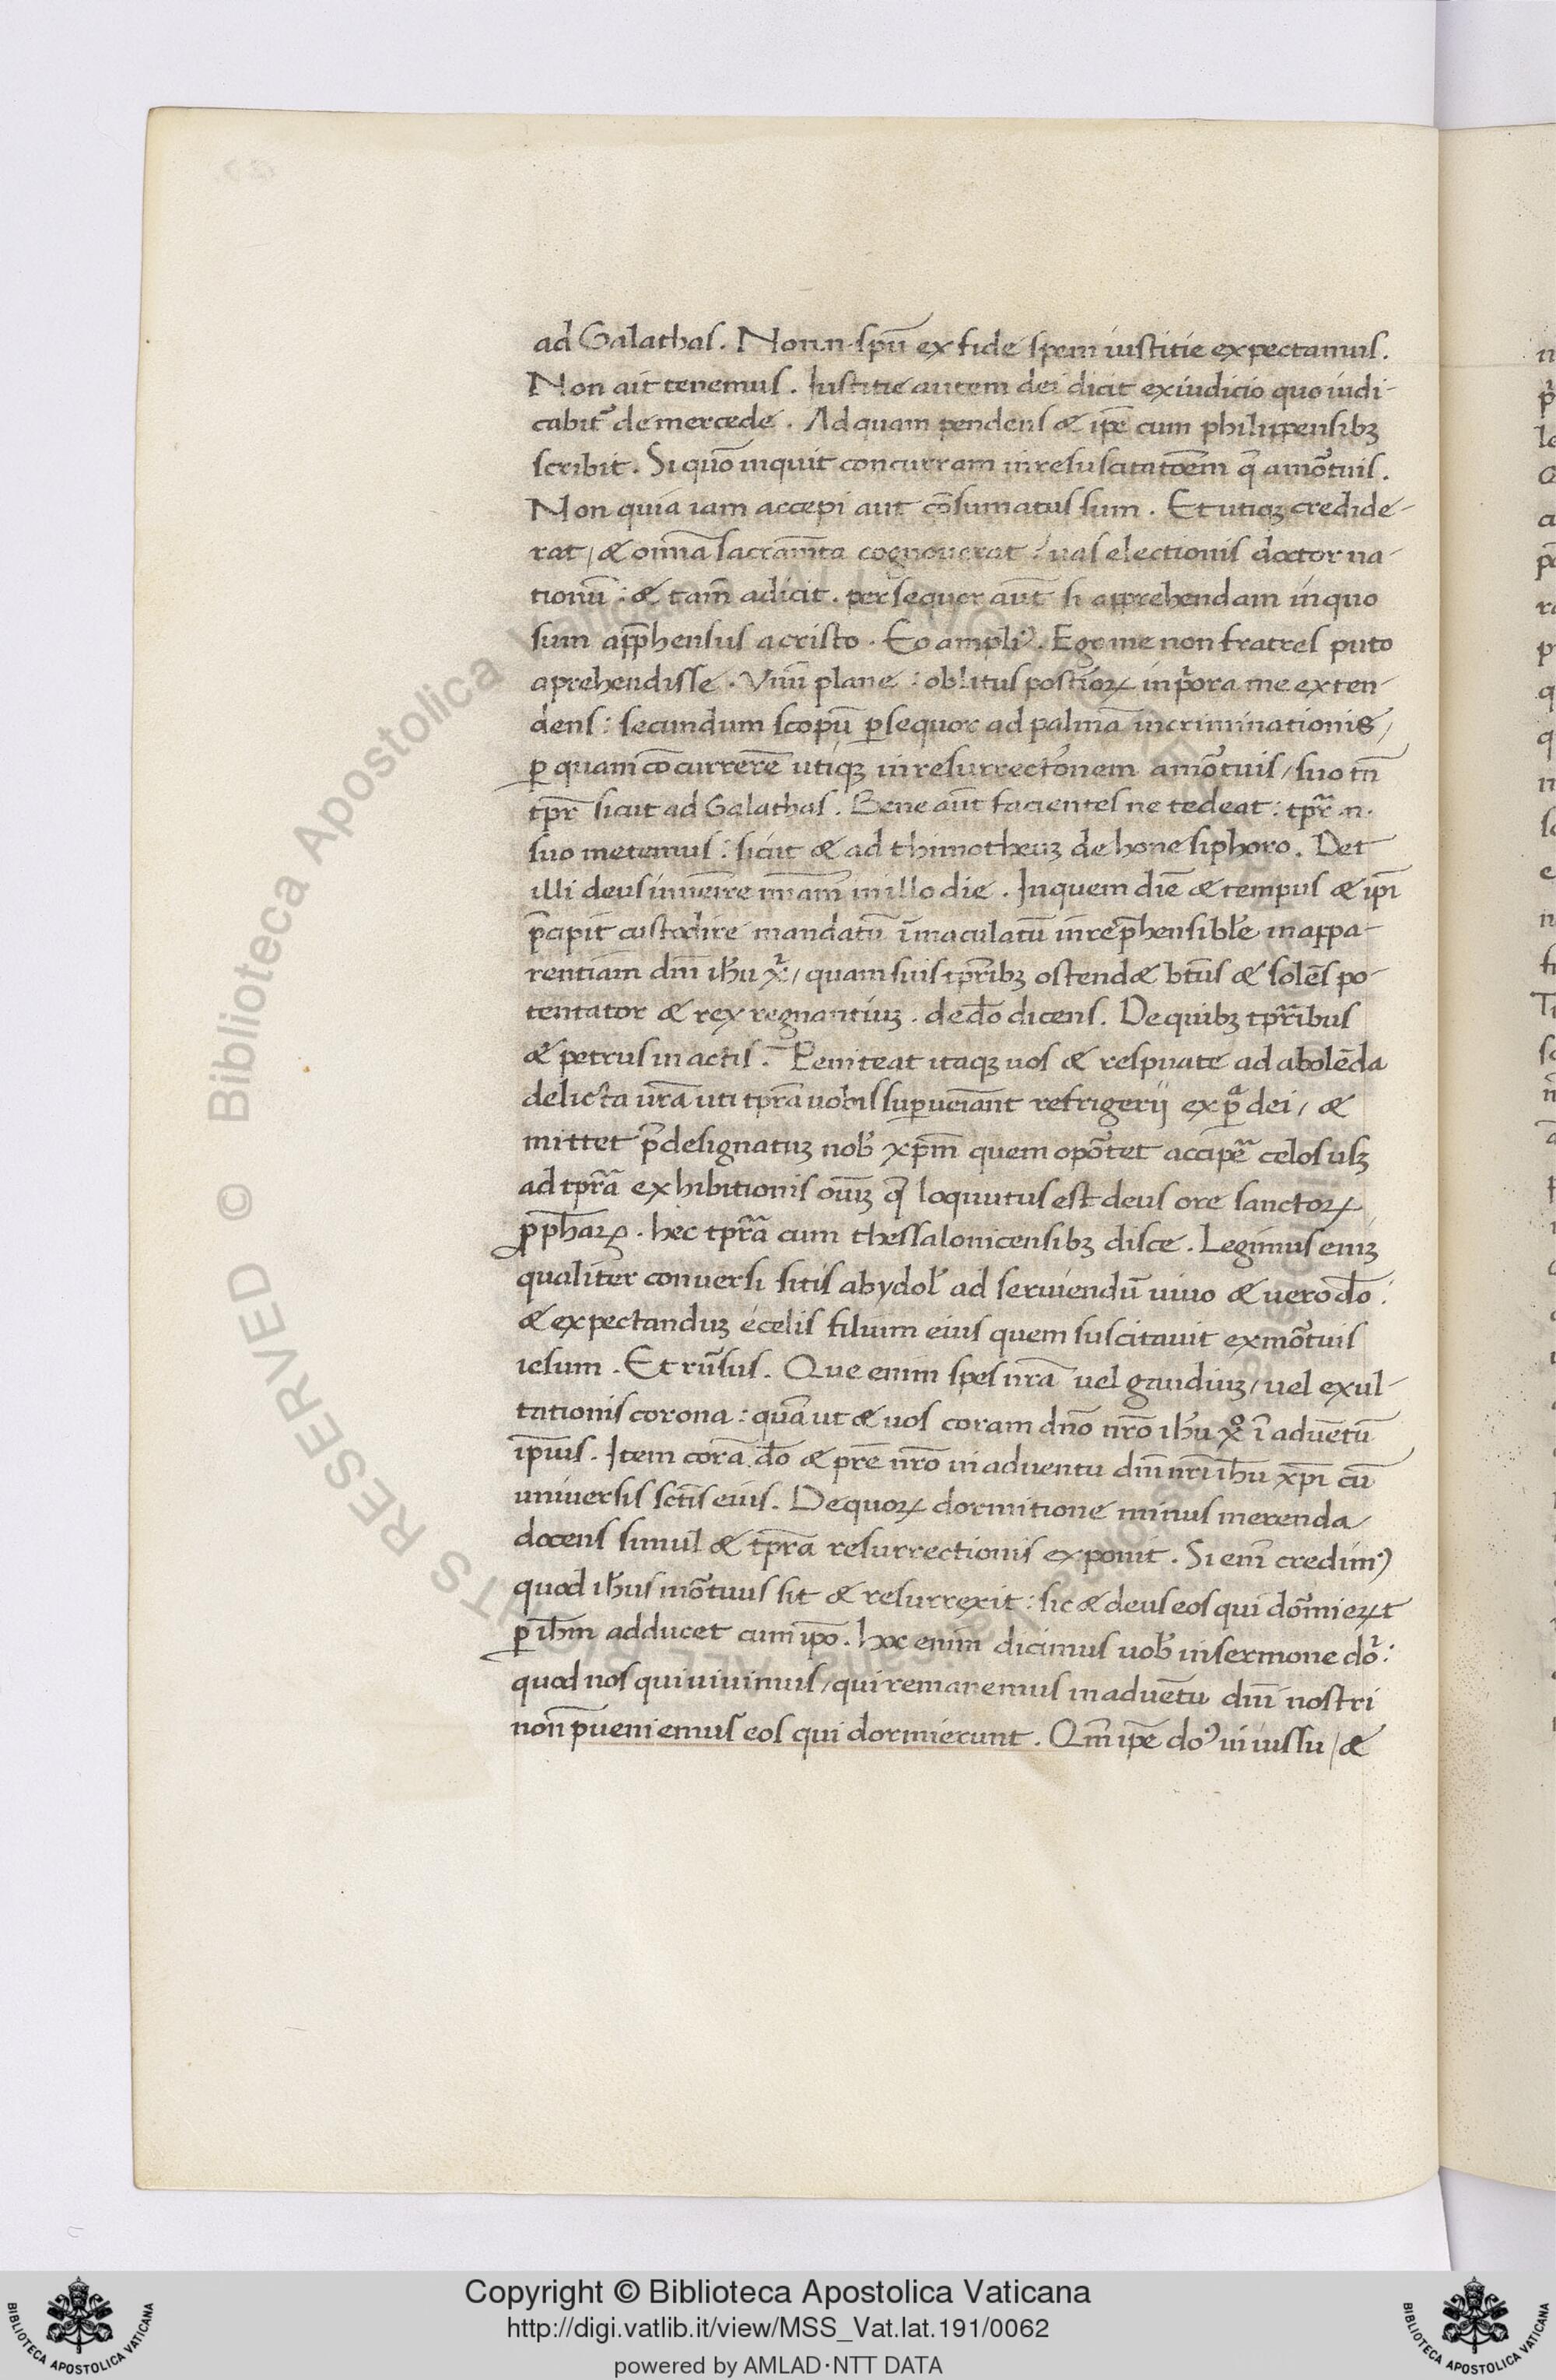 ad Galathas. Non .n. spū ex fide spem iustitie expectamus.
Non ait tenemus. Iustitie autem dei dicit ex iudicio quo iudi-
cabit᷑ de mercede. Ad quam pendens & ip̄e cum philippensibꝫ
scribit. Si quō inquit concurram in resuscitatōem q̄ a mo᷑tuis.
Non quia iam accepi aut cōsumatus sum. Et utiqꝫ credide-
rat / & om̄ia sacram̄ta cognouerat : uas electionis doctor na-
tionū : & tam̄ adicit. persequor aūt si apprehendam in quo
sum app̄hensus a cristo. Eo ampliꝰ. Ego me non fratres puto
aprehendisse. Vnū plane : oblitus postioꝝ in p̓ora me exten-
dens : secundum scopū ꝑsequor ad palmā incriminationis /
ꝑ quam cōcurrerē utiqꝫ in resurrectōnem a mo᷑tuis / suo tn̄
tp̄r sicut ad Galathas. Bene aūt facientes ne tedeat : tp̄r .n.
suo metemus : sicut & ad thimotheuꝫ de honesiphoro. Det
illi deus inuēire mīam in illo die. In quem diē & tempus & ip̄i
p̄cipit custodire mandatū īmaculatū inrep̄hensibl̓e in appa-
rentiam dn̄i ih̓u x̓ / quam suis tp̄ribꝫ ostend& bt̄us & solēs po-
tentator & rex regnantiuꝫ. de d̄o dicens. De quibꝫ tp̄ribus
& petrus in actis. Peniteat itaqꝫ uos & respuate ad abolēda
delicta ur̄a uti tp̄ra uobis suꝑueniant refrigerij ex ꝑᵃ dei / &
mittet p̄designatuꝫ nob̓ xp̄m quem opo᷑tet accip̄e celos usqꝫ
ad tp̄ra exhibitionis om̄iuꝫ q̄ loquutus est deus ore sanctoꝝ
ꝓph̄aꝝ. hec tp̄ra cum thessalonicensibꝫ disce. Legimus eniꝫ
qualiter conuersi sitis ab ydol̓ ad seruiendū uiuo & uero d̄o :
& expectanduꝫ e celis filium eius quem suscitauit ex mo᷑tuis
iesum. Et ru᷑sus. Que enim spes nr̄a uel gaudiuꝫ / uel exul-
tationis corona : quā ut & uos coram dn̄o nr̄o ih̓u x̊ ī aduētū
ip̄iuis. Item corā d̄o & pr̄e nr̄o in aduentu dn̄i nr̄i ih̄u xp̄i cū
uniuersis sct̄is eius. De quoꝝ dormitione minus merenda
docens simul & tp̄ra resurrectionis exponit. Si enī credimꝰ
quod ih̓us mo᷑tuus sit & resurrexit : sic & deus eos qui do᷑mieꝝt
ꝑ ih̄m adducet cum ip̄o. hoc enim dicimus uob̓ in sermone do᷑ :
quod nos qui uiuimus / qui remanemus in aduētu dn̄i nostri
non p̄ueniemus eos qui dormierunt. Qm̄ ip̄e doꝰ in iussu / &
Copyright © Biblioteca Apostolica Vaticana
http://digi.vatlib.it/view/MSS_Vat.lat.191/0062
powered by AMLAD·NTT DATA